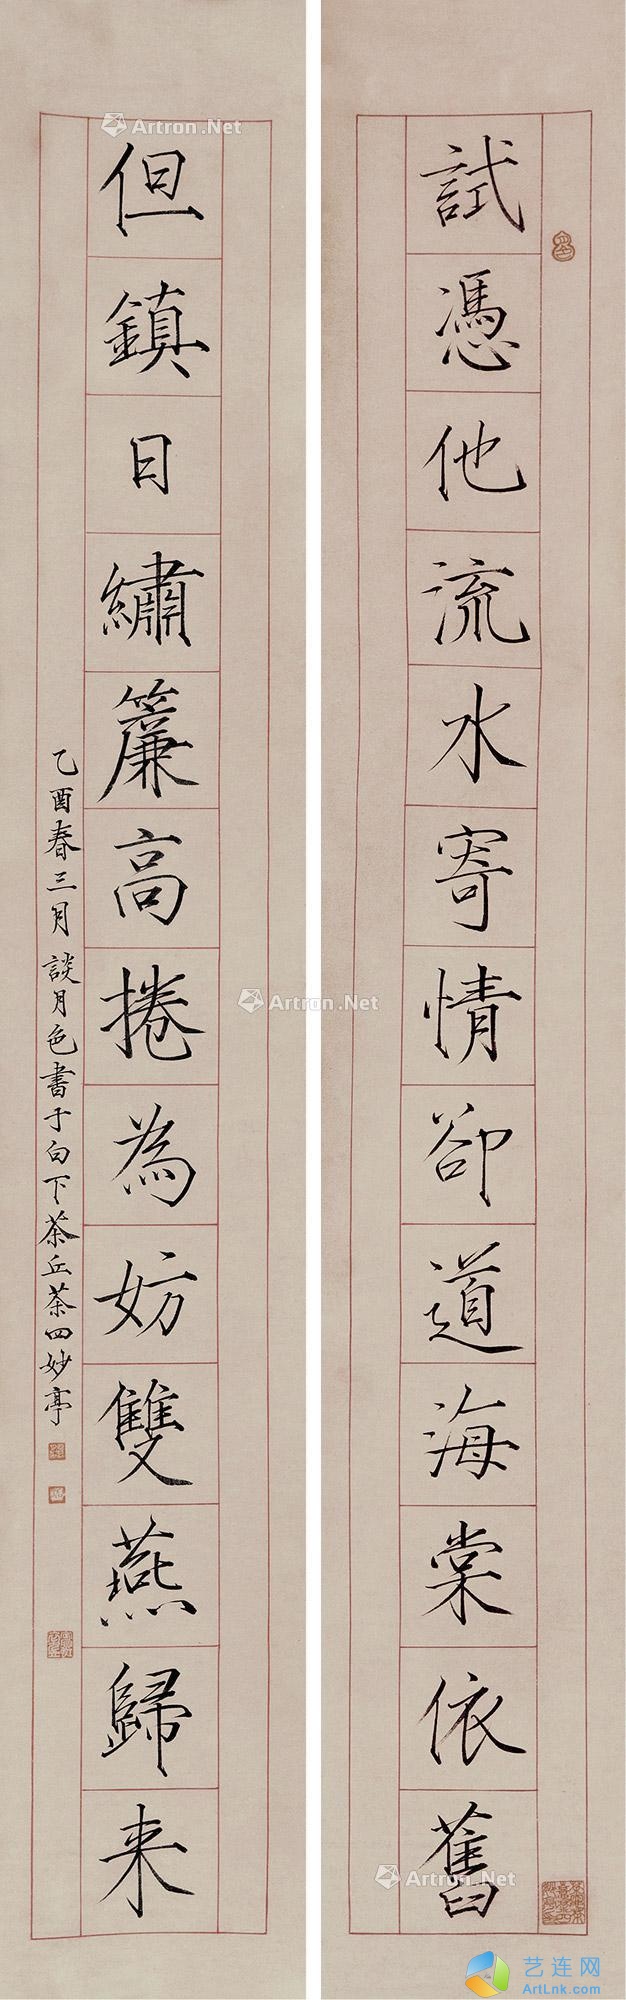 試憑他流水寄情卻道海棠依舊
但鎮日繡簾高捲為妨雙燕歸来
乙酉春三月談月色書于白下茶丘茶四妙亭
Artron.Net
Artron.Net
Artron.Net
艺连网
ArtLnk.com